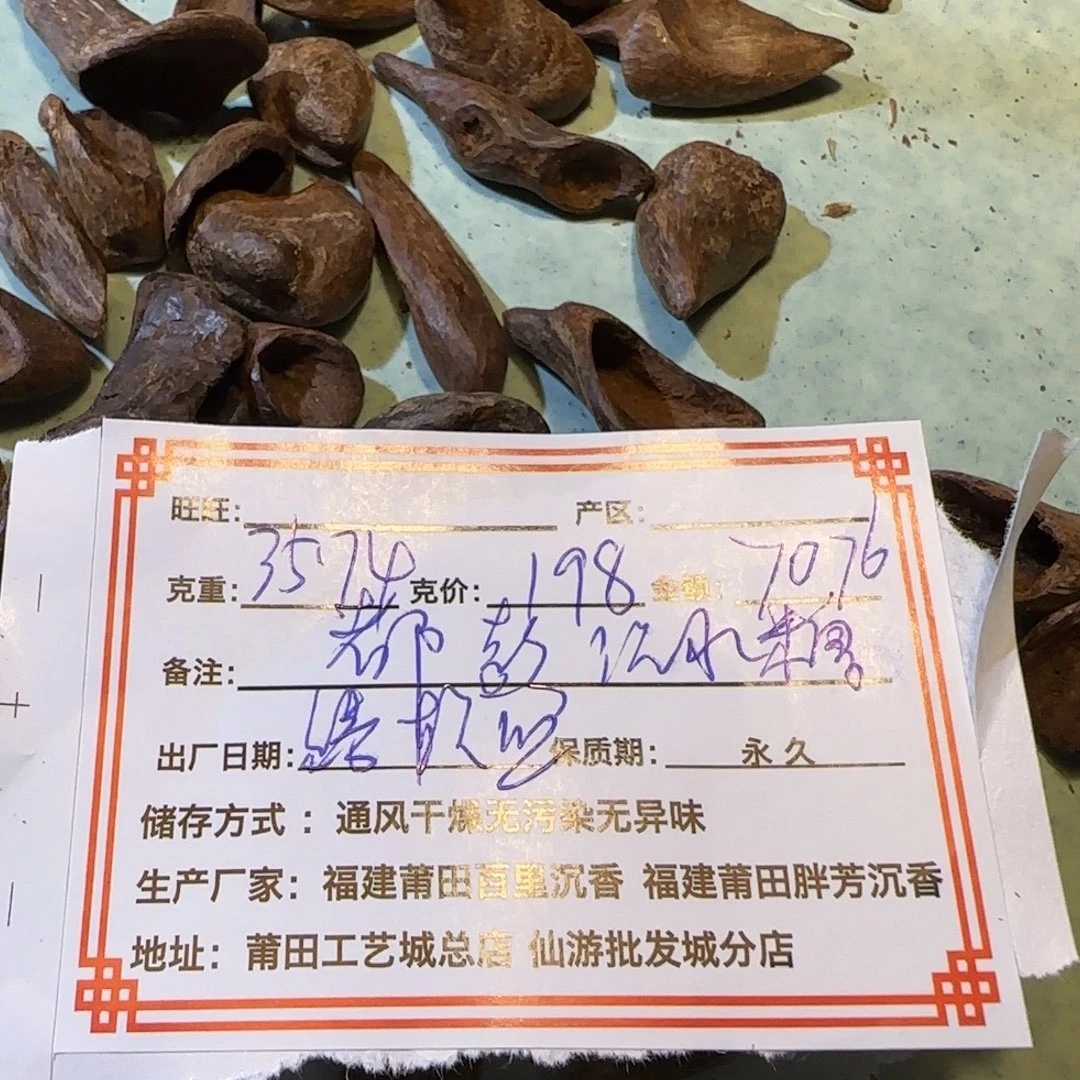 旺旺： 产区：
克重：3574 克价：198 金额：7076
备注：都彭
出厂日期： 保质期：永久
储存方式：通风干燥无污染无异味
生产厂家：福建莆田百里沉香 福建莆田胖芳沉香
地址：莆田工艺城总店 仙游批发城分店